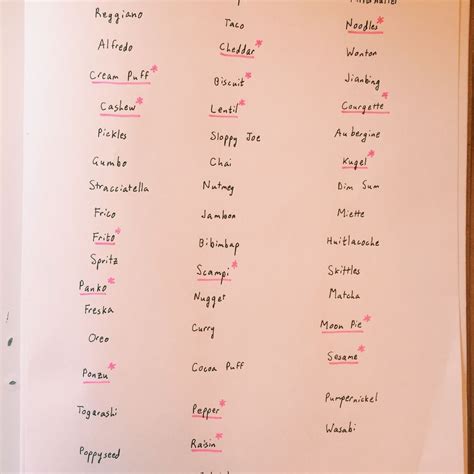 Reggiano
Alfredo
Cream Puff*
Cashew*
Pickles
Gumbo
Stracciatella
Frico
Frito*
Spritz
Panko*
Freska
Oreo
Ponzu*
Togarashi
Poppyseed
Taco
Cheddar*
Biscuit*
Lentil*
Sloppy Joe
Chai
Nutmeg
Jambon
Bibimbap
Scampi*
Nugget
Curry
Cocoa Puff
Pepper*
Raisin*
Noodles*
Wonton
Jianbing
Courgette*
Aubergine
Kugel*
Dim Sum
Miette
Huitlacoche
Skittles
Matcha
Moon Pie*
Sesame*
Pumpernickel
Wasabi